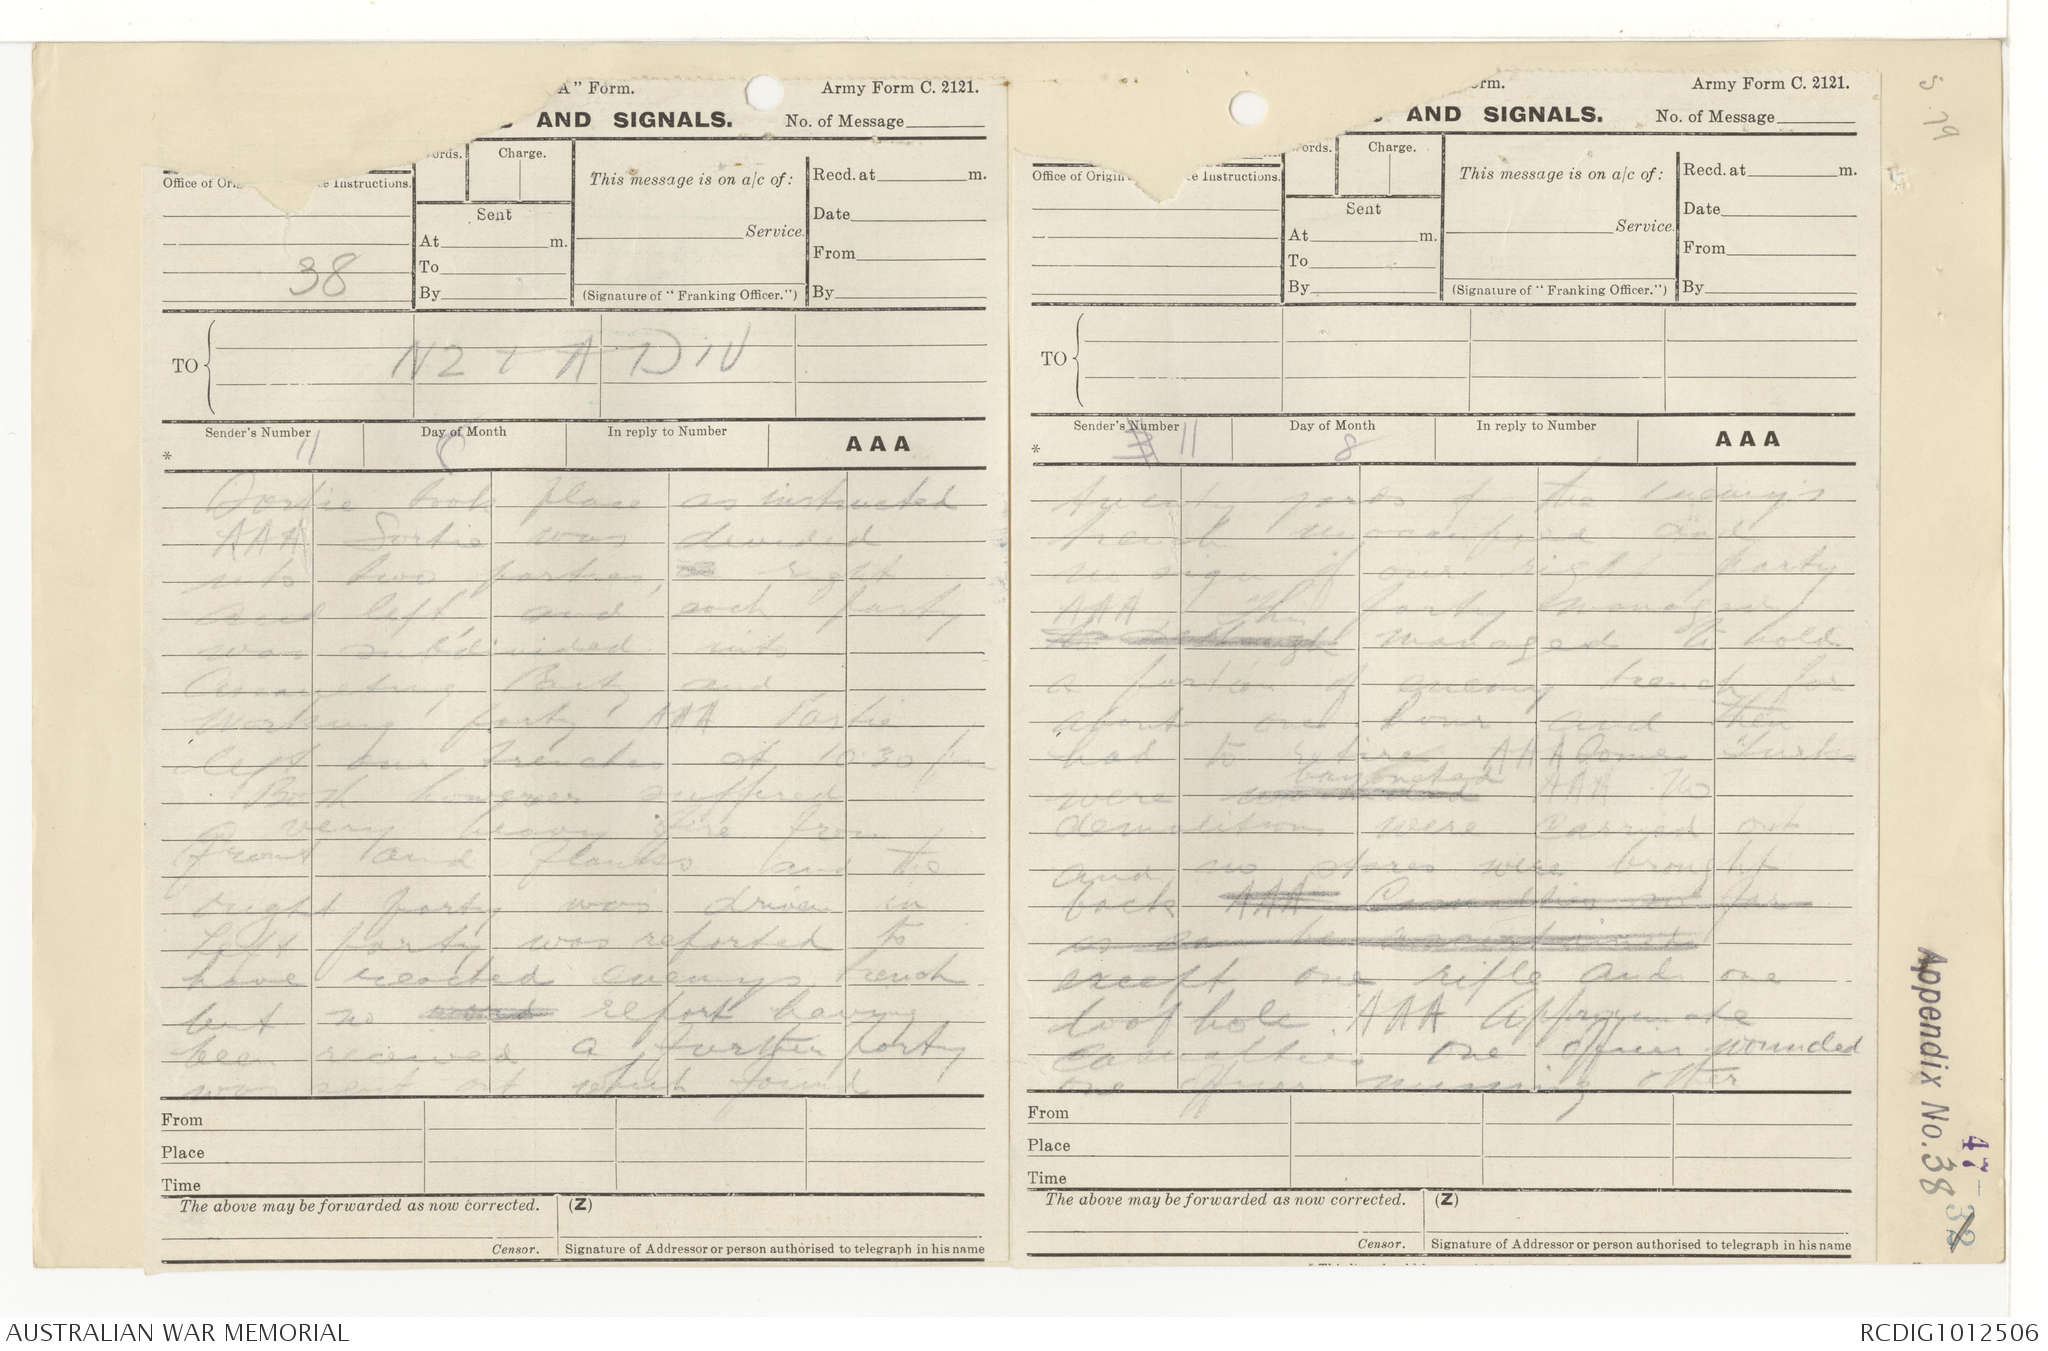 A" Form.
Army Form C. 2121.
AND SIGNALS.
No. of Message
Charge.
This message is on a/c of:
Recd. at m.
Office of Orig
e Instructions.
Sent
Date
Service.
At m.
From
To
38
By
(Signature of "Franking Officer.")
By
TO
NZ & A DIV
Sender's Number
Day of Month
In reply to Number
AAA
* 11
8
Sortie took place as instructed
AAA Sortie was devided
into two parties, right
and left and each party
was subdivided into
Assaulting Party and
Working party AAA Partie
left our trenches at 10.30 pm
Both however suffered
very heavy fire from
front and flanks and the
right party was driven in
Left party was reported to
have reached enemys trench
but no report having
been received a further party
was sent out which found
From
Place
Time
The above may be forwarded as now corrected.
(Z)
Censor.
Signature of Addressor or person authorised to telegraph in his name
rm.
Army Form C. 2121.
AND SIGNALS.
No. of Message
ords.
Charge.
This message is on a/c of:
Recd. at m.
Office of Origin
e Instructions.
Sent
Date
Service.
At m.
From
To
By
(Signature of "Franking Officer.")
By
TO
Sender's Number
Day of Month
In reply to Number
AAA
* 11
8
twenty yards of the enemy's
trench unoccupied and
no sign of our right party
AAA This party
managed to hold
a portion of enemy trench for
about one hour and then
had to retire AAA Some Turks
were bayoneted AAA No
demolitions were carried out
and no stores were brought
back AAA Casualties so far
as can be ascertained
except one rifle and one
loophole. AAA Approximate
Casualties one officer wounded
one officer missing other
From
Place
Time
The above may be forwarded as now corrected.
(Z)
Censor.
Signature of Addressor or person authorised to telegraph in his name
S. 79
Appendix No. 38
47
AUSTRALIAN WAR MEMORIAL
RCDIG1012506